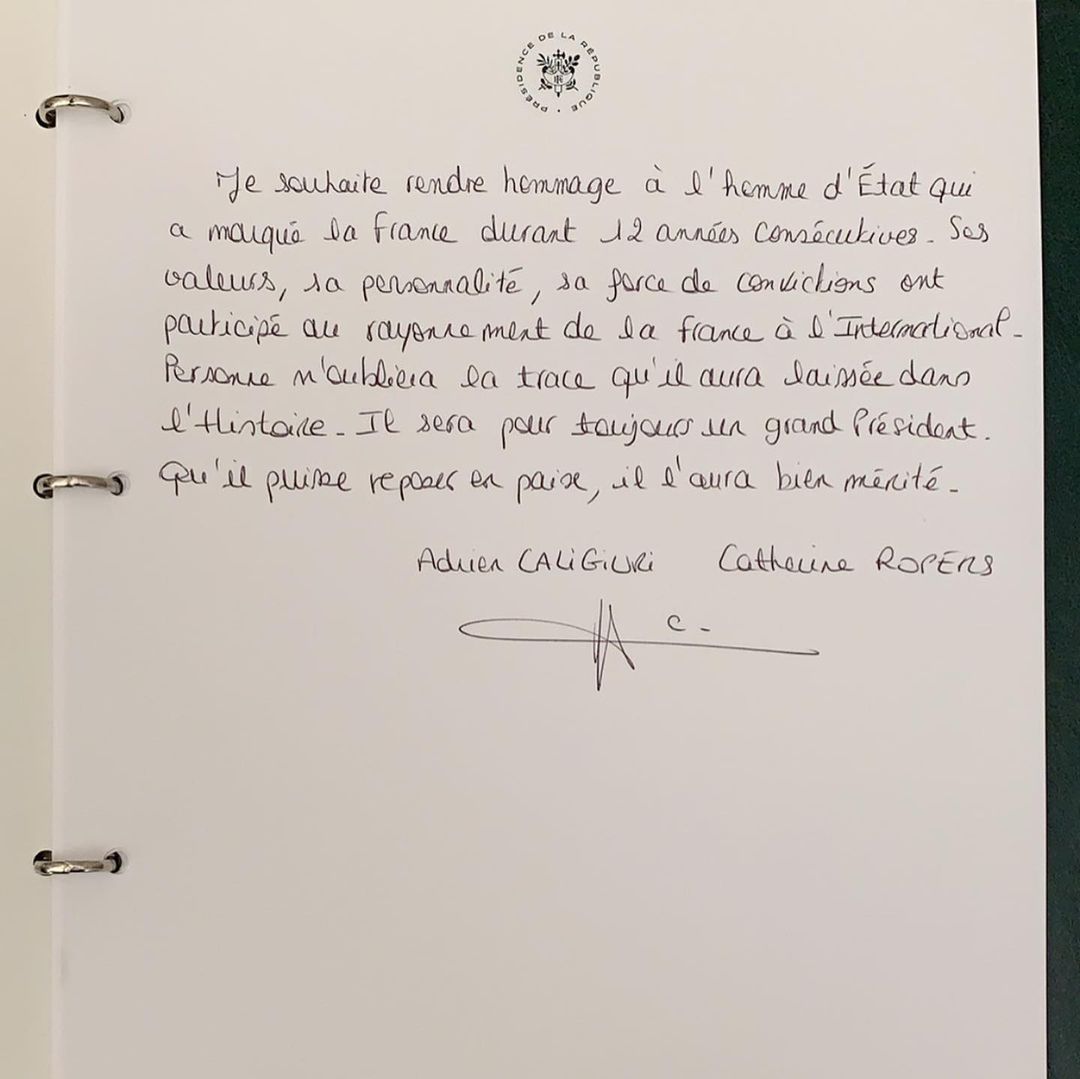 PRÉSIDENCE DE LA RÉPUBLIQUE
Je souhaite rendre hommage à l'homme d'État qui
a marqué la france durant 12 années consécutives. Ses
valeurs, sa personnalité, sa force de convictions ont
participé au rayonnement de la france à l'International.
Personne n'oubliera la trace qu'il aura laissée dans
l'Histoire. Il sera pour toujours un grand Président.
Qu'il puisse reposer en paix, il l'aura bien mérité.
Adrien CALIGIURI Catherine ROPERS
C.